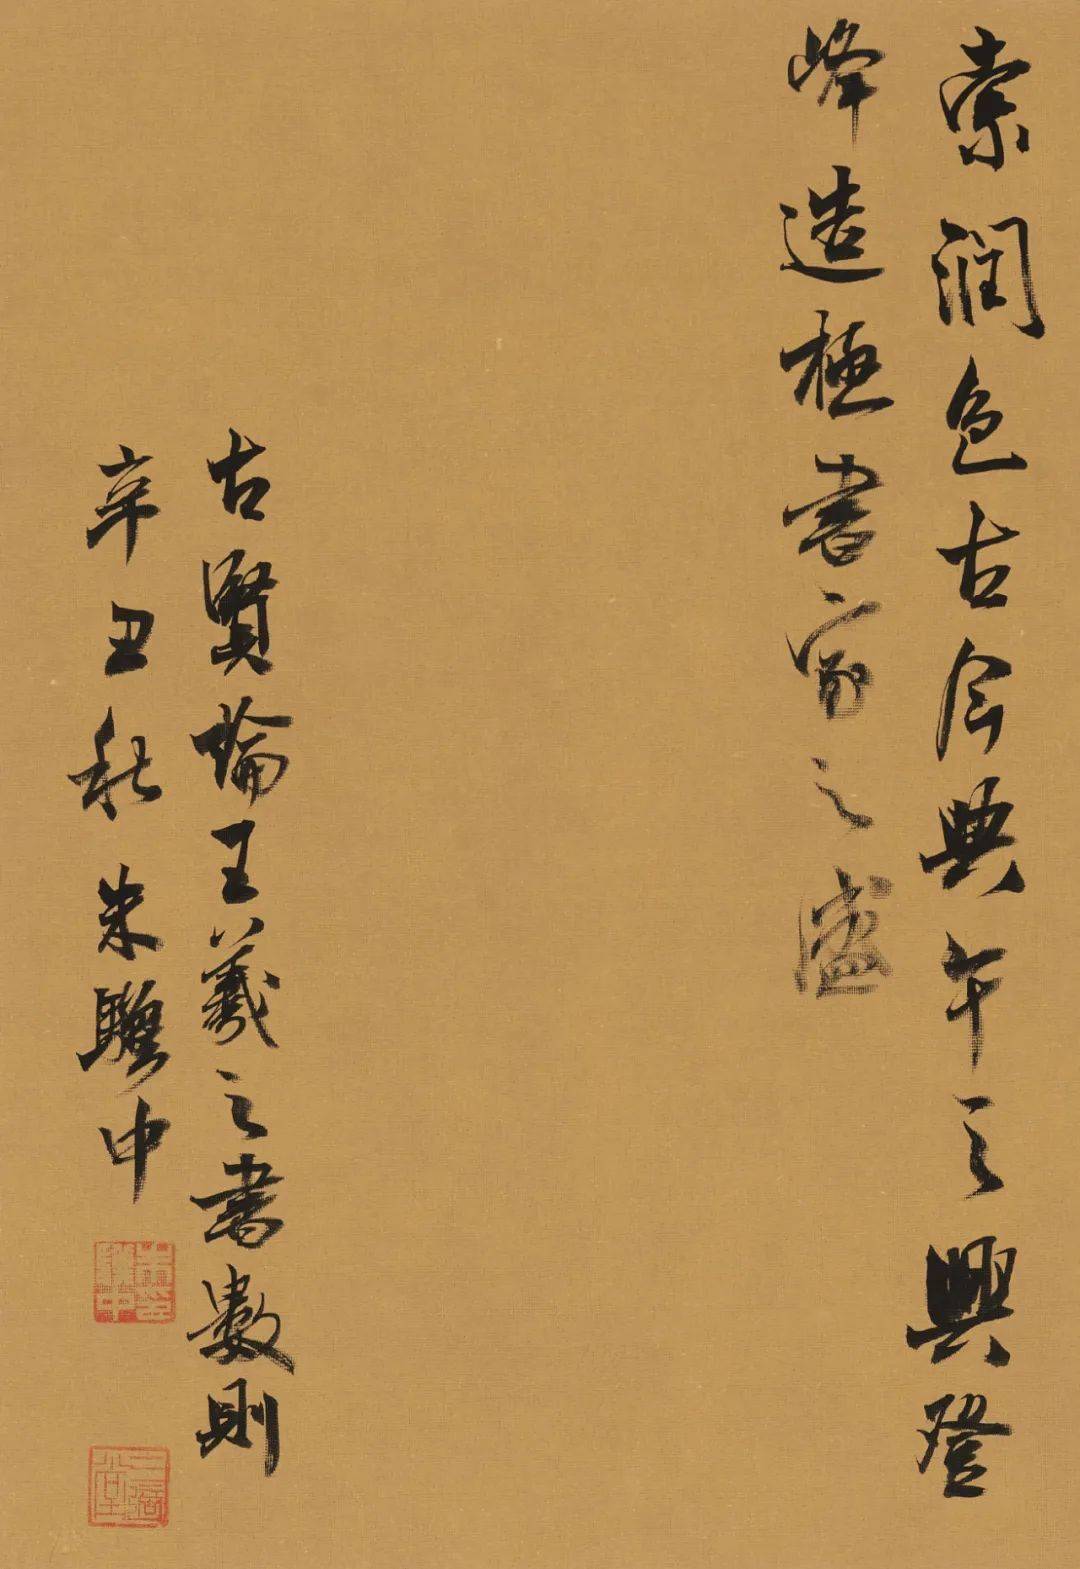 索润色古今典午之興登
峰造極書家之盛
古賢論王羲之書數則
辛丑秋朱聯中